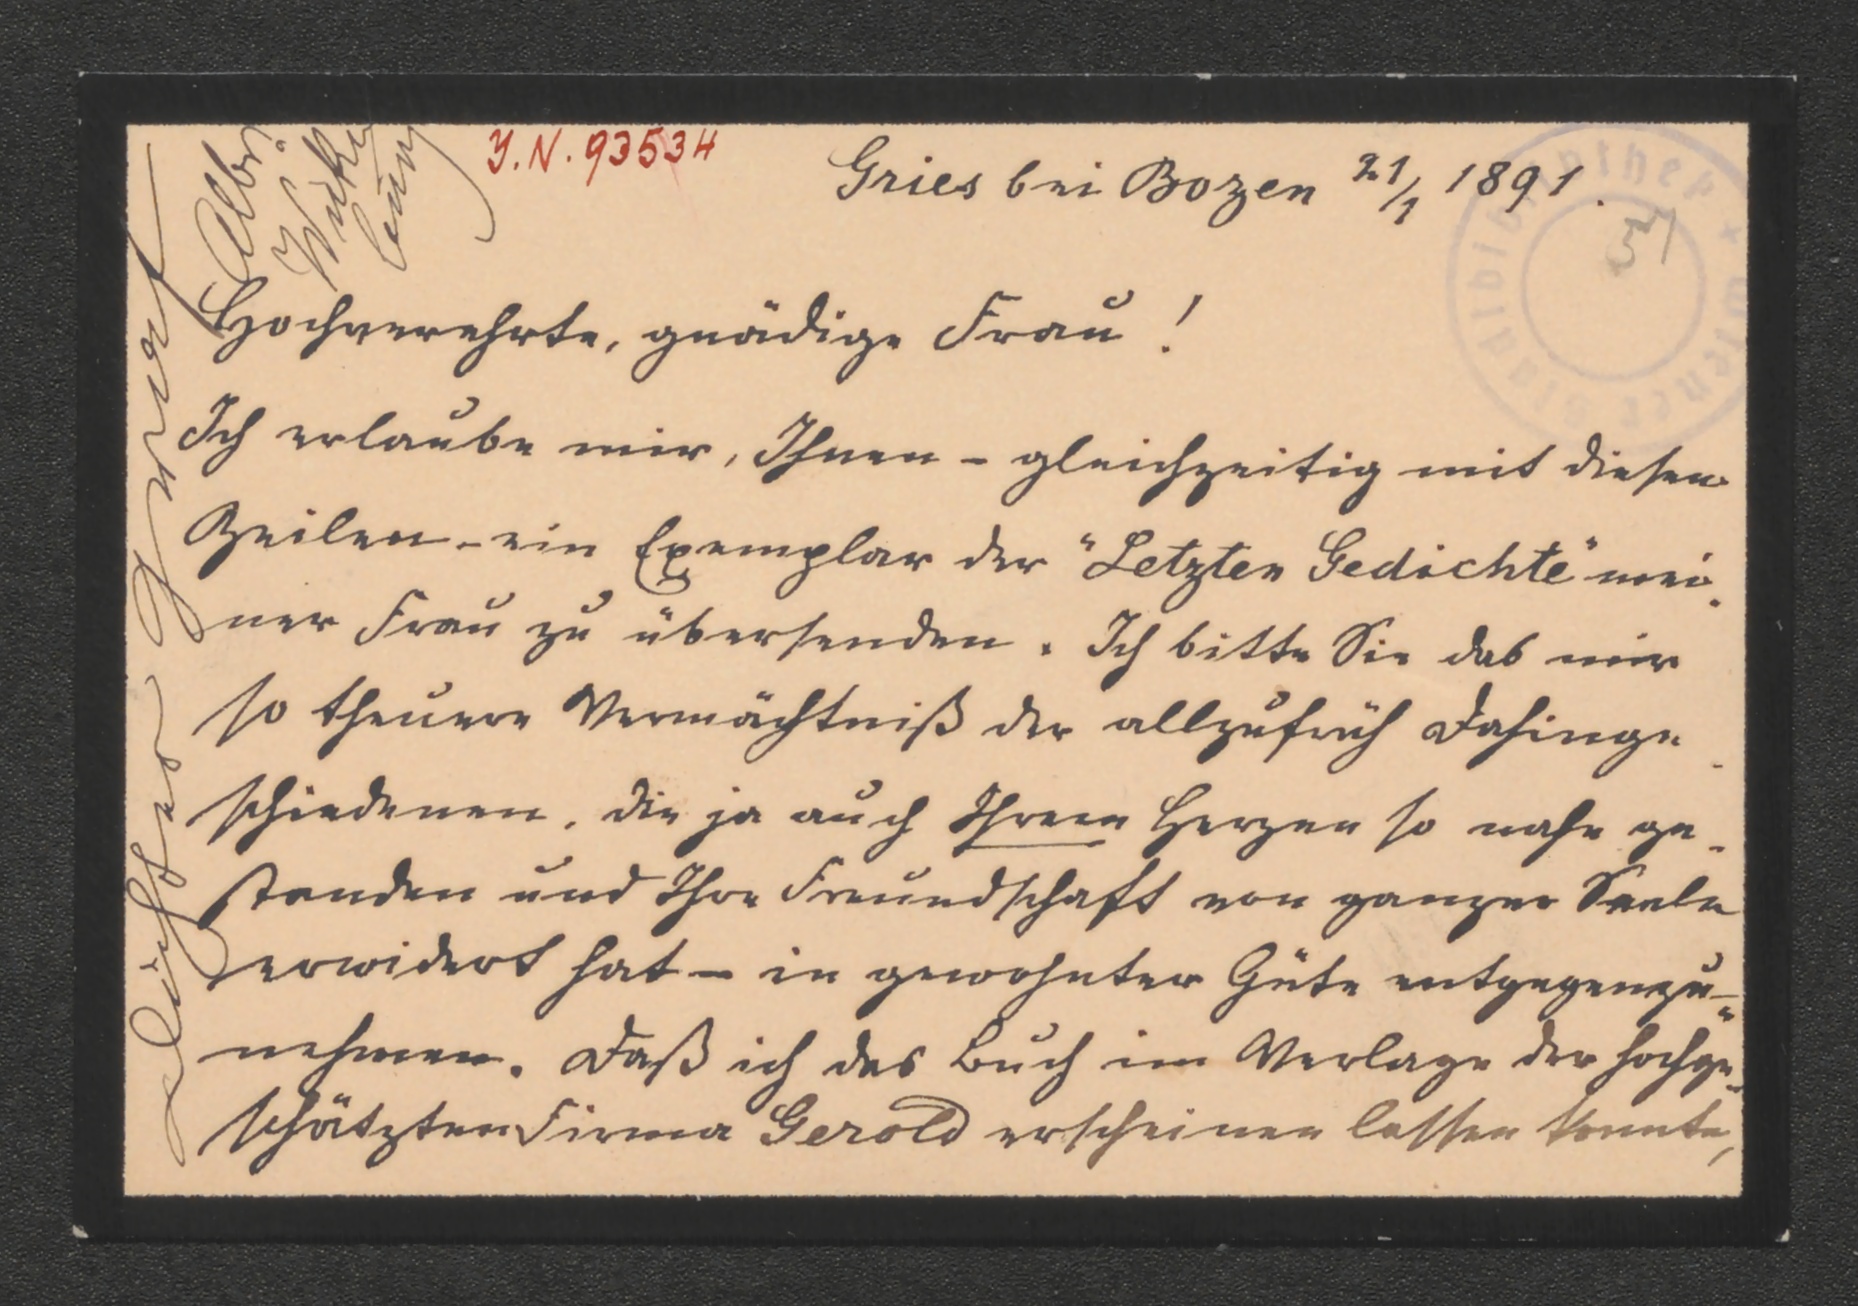 J.N. 93534
Gries bei Bozen 21/1 1891.
51
Hochverehrte, gnädige Frau!
Ich erlaube mir, Ihnen – gleichzeitig mit diesen
Zeilen – ein Exemplar der "Letzten Gedichte" mei-
ner Frau zu übersenden. Ich bitte Sie das mir
so theuere Vermächtniß der allzufrüh Dahinge-
schiedenen, die ja auch Ihrem Herzen so nahe ge-
standen und Ihre Freundschaft von ganzer Seele
erwidert hat – in gewohnter Güte entgegenzu-
nehmen. Daß ich das Buch im Verlage der hochge-
schätzten Firma Gerold erscheinen lassen konnte,